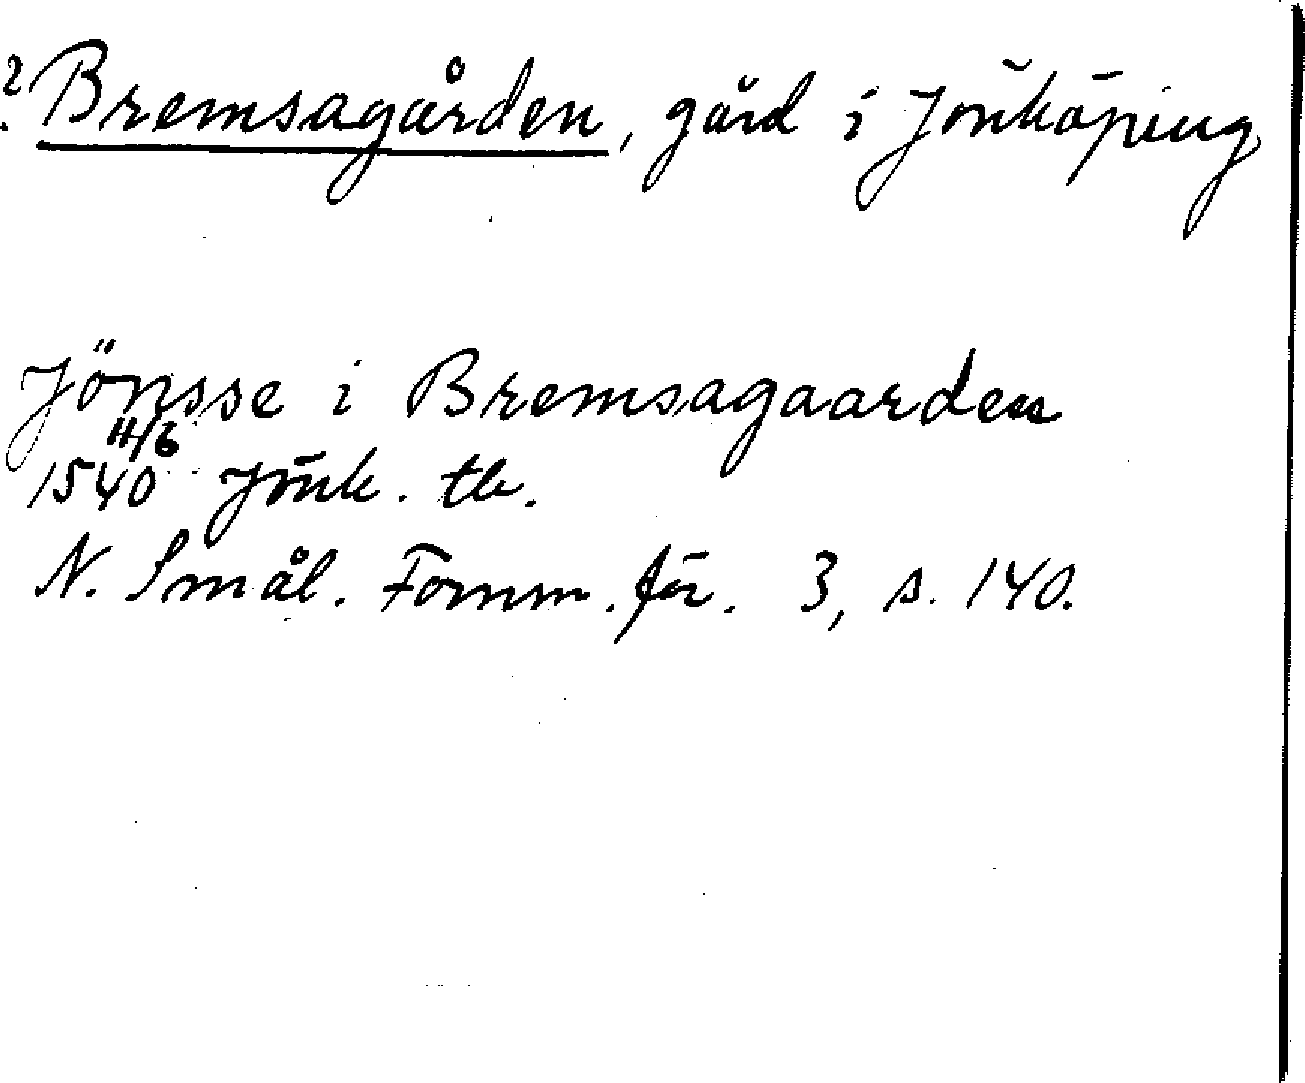 ? Bremsagården, gård i Jönköping
Jönsse i Bremsagaarden
1540 11/6 Jönk. tb.
N. Smål. Fornm. för. 3, s. 140.